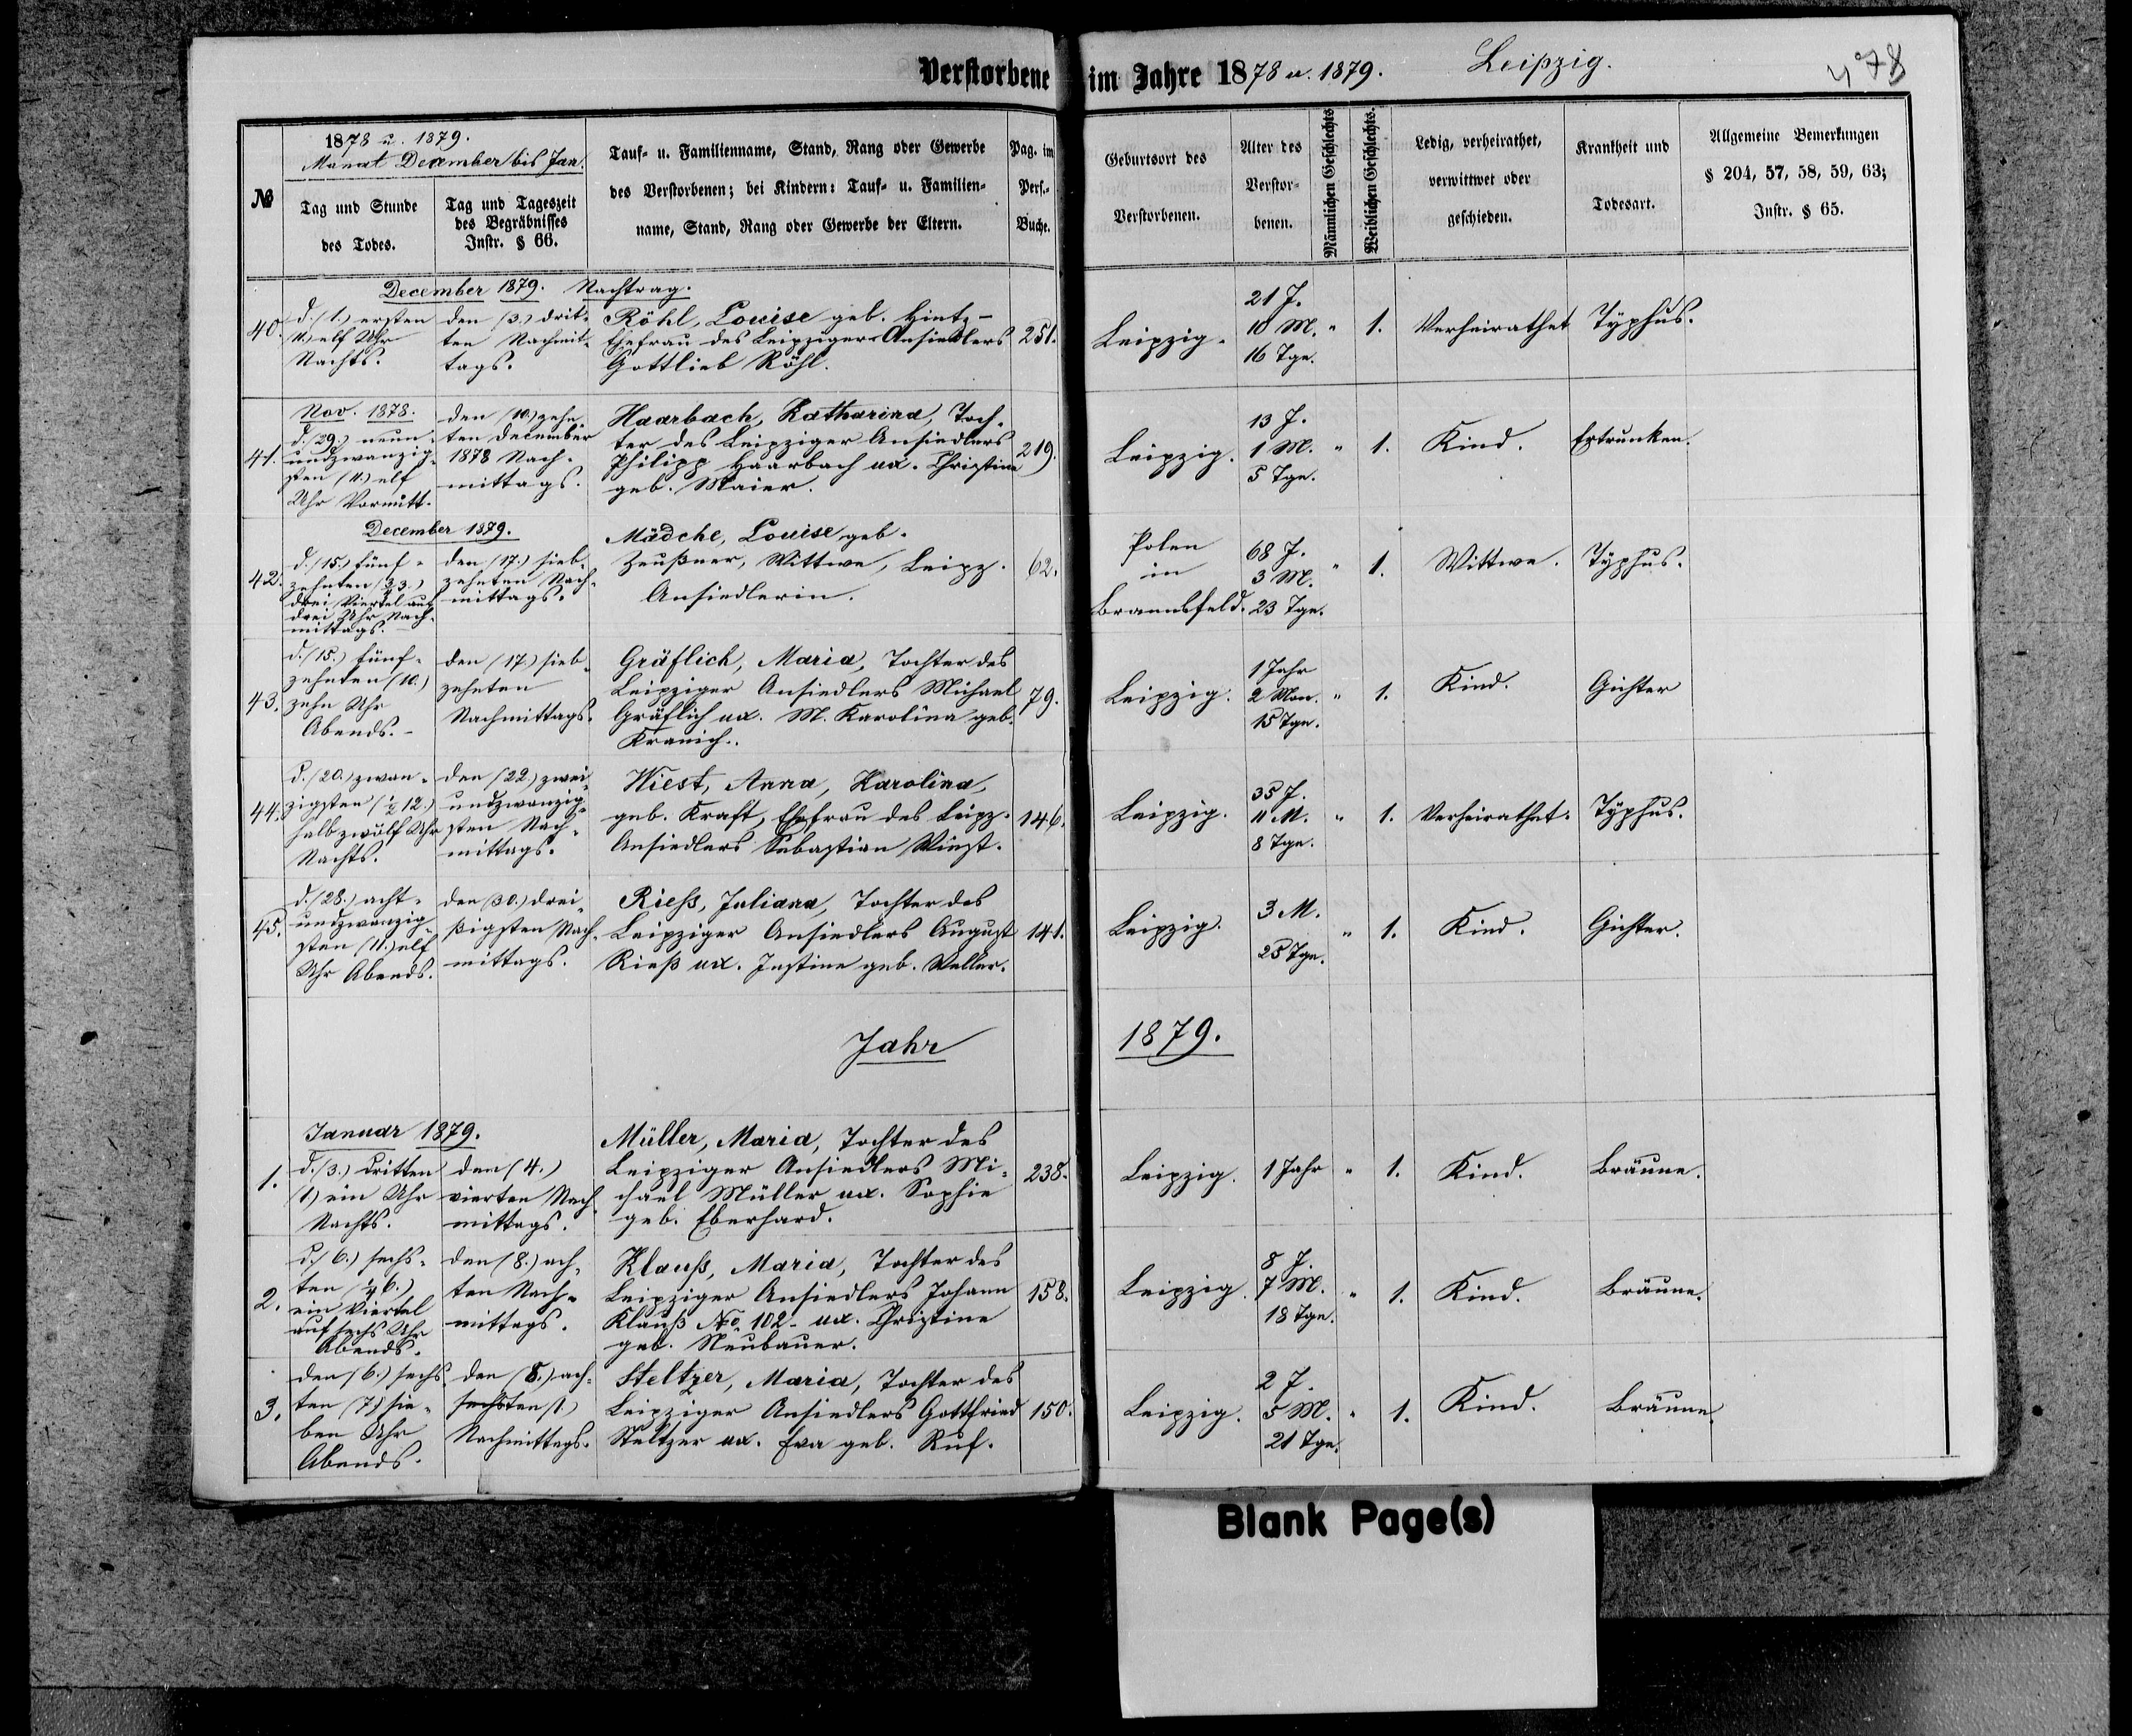 Verstorbene im Jahre 1878 u. 1879. Leipzig. 478
№
1878 u. 1879.
Monat December bis Jan.
Tag und Stunde
des Todes.
Tag und Tageszeit
des Begräbnisses
Instr. § 66.
Tauf- u. Familienname, Stand, Rang oder Gewerbe
des Verstorbenen; bei Kindern: Tauf- u. Familien-
name, Stand, Rang oder Gewerbe der Eltern.
Pag. im
Pers.-
Buche.
Geburtsort des
Verstorbenen.
Alter des
Verstor-
benen.
Männlichen Geschlechts
Weiblichen Geschlechts.
Ledig, verheirathet,
verwittwet oder
geschieden.
Krankheit und
Todesart.
Allgemeine Bemerkungen
§ 204, 57, 58, 59, 63;
Instr. § 65.
December 1879. Nachtrag.
40.
d. (1.) ersten
(11.) elf Uhr
Nachts.
den (3.) drit-
ten Nachmit-
tags.
Röhl, Louise geb. Hintz-
Ehefrau des Leipziger Ansiedlers
Gottlieb Röhl.
251.
Leipzig.
21 J.
10 M.
16 Tge.
" 1.
Verheirathet
Typhus.
41.
Nov. 1878.
d. (29.) neun-
undzwanzig-
sten (11.) elf
Uhr Vormitt.
den (10.) zehn-
ten December
1878 Nach-
mittags.
Haarbach, Katharina, Toch-
ter des Leipziger Ansiedlers
Philipp Haarbach ux. Christine
geb. Maier.
219.
Leipzig.
13 J.
1 M.
5 Tge.
" 1.
Kind.
Ertrunken.
December 1879.
42.
d. (15.) fünf-
zehnten (3/4 3.)
drei Viertel auf
drei Uhr Nach-
mittags.
den (17.) sieb-
zehnten Nach-
mittags.
Mädche, Louise geb.
Zeußner, Wittwe, Leipz.
Ansiedlerin.
62.
Polen
in
68 J.
3 M.
23 Tge.
" 1.
Wittwe.
Typhus.
43.
d. (15.) fünf-
zehnten (10.)
zehn Uhr
Abends.-
den (17.) sieb-
zehnten
Nachmittags.
Gräflich, Maria, Tochter des
Leipziger Ansiedlers Michael
Gräflich ux. M. Karolina geb.
Kranich.
79.
Leipzig.
1 Jahr
2 Mon.
15 Tge.
" 1.
Kind.
Gichter
44.
d. (20.) zwan-
zigsten (1/2 12.)
halb zwölf Uhr
Nachts.
den (22.) zwei-
undzwanzig-
sten Nach-
mittags.
Wiest, Anna, Karolina,
geb. Kraft, Ehefrau des Leipz.
Ansiedlers Sebastian Wiest.
146.
Leipzig.
35 J.
11 M.
8 Tge.
" 1.
Verheirathet.
Typhus.
45.
d. (28.) acht-
undzwanzig-
sten (11.) elf
Uhr Abends.
den (30.) drei-
ßigsten Nach-
mittags.
Rieß, Juliana, Tochter des
Leipziger Ansiedlers August
Rieß ux. Justine geb. Weller.
141.
Leipzig.
3 M.
25 Tge.
" 1.
Kind.
Gichter.
Jahr 1879.
Januar 1879.
1.
d. (3.) dritten
(1.) ein Uhr
Nachts.
den (4.)
vierten Nach-
mittags.
Müller, Maria, Tochter des
Leipziger Ansiedlers Mi-
chael Müller ux. Sophie
geb. Eberhard.
238.
Leipzig.
1 Jahr
" 1.
Kind.
Bräune.
2.
d. (6.) sechs-
ten (1/4 6.)
ein Viertel
auf sechs Uhr
Abends.
den (8.) ach-
ten Nach-
mittags.
Klauß, Maria, Tochter des
Leipziger Ansiedlers Johann
Klauß No 102- ux. Christine
geb. Neubauer.
158.
Leipzig.
8 J.
7 M.
18 Tge.
" 1.
Kind.
Bräune.
3.
den (6.) sechs-
ten (7.) sie-
ben Uhr
Abends.
den (8.) ach-
Nachmittags.
Steltzer, Maria, Tochter des
Leipziger Ansiedlers Gottfried
Steltzer ux. Eva geb. Ruf.
150.
Leipzig.
2 J.
5 M.
21 Tge.
" 1.
Kind.
Bräune.
Blank Page(s)